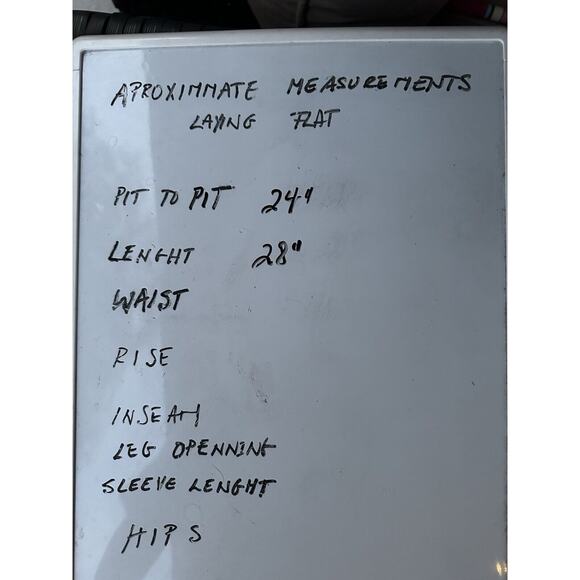 APROXIMMATE MEASUREMENTS
LAYING FLAT
PIT TO PIT 24"
LENGHT 28"
WAIST
RISE
INSEAM
LEG OPENNING
SLEEVE LENGHT
HIPS